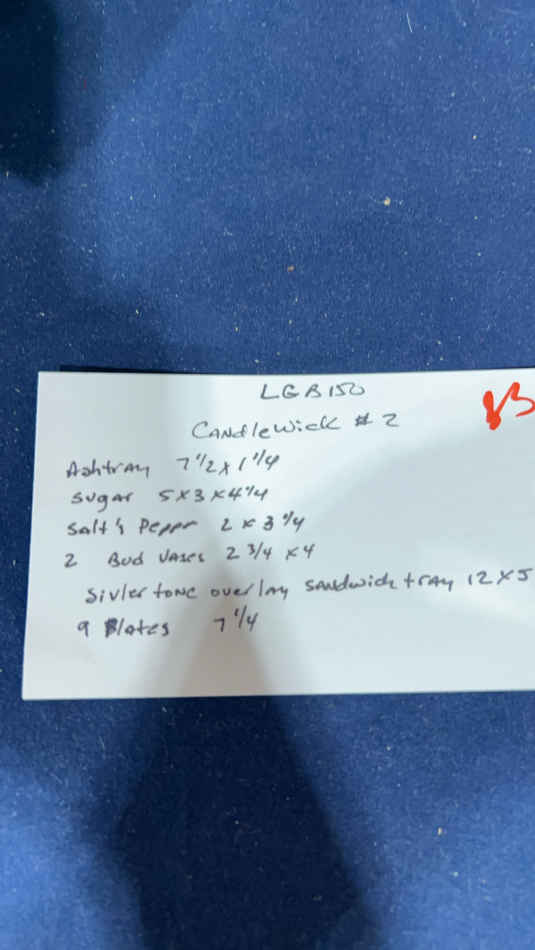 LGB150
83
CANdleWick # 2
Ashtray 7 1/2 x 1 1/4
Sugar 5x3x4 1/4
Salt & Pepper 2 x 3 1/4
2 Bud Vases 2 3/4 x4
Sivler tone overlay sandwich tray 12x5
9 Plates 7 1/4